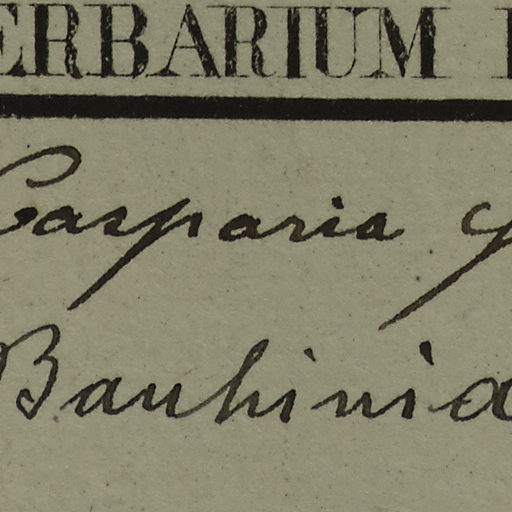 ERBARIUM
Casparia
Bauhinia